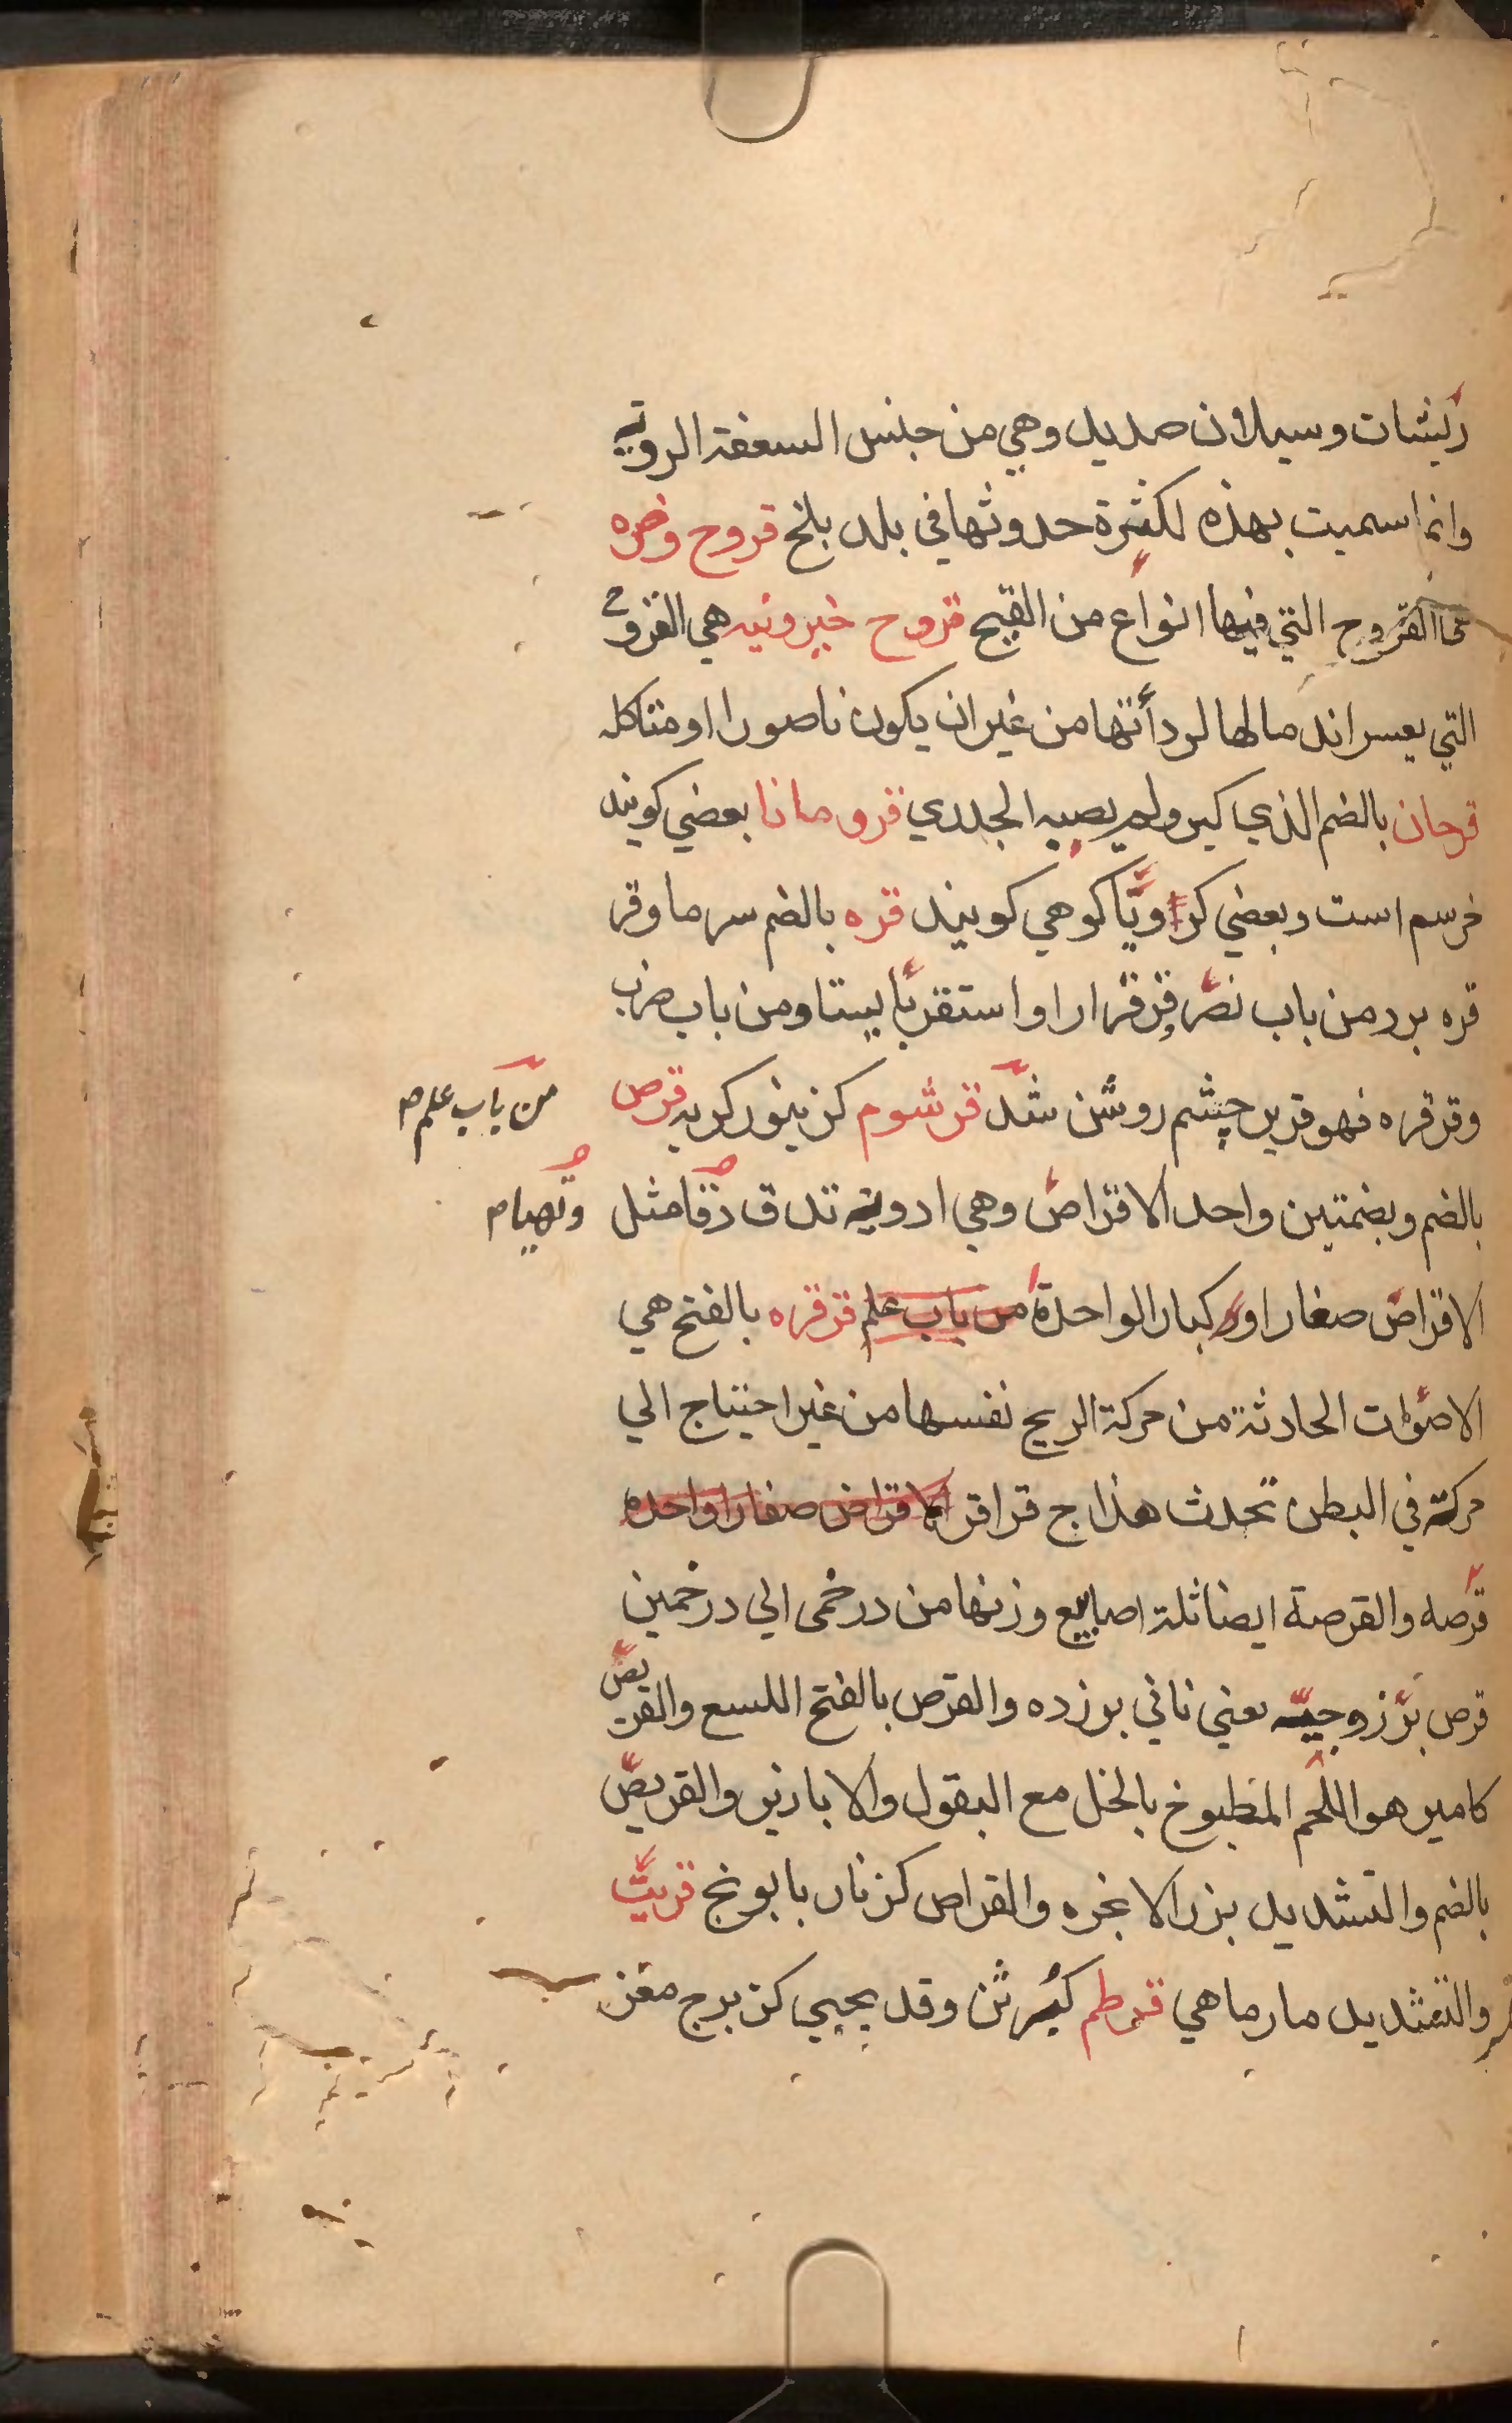 ريشات وسيلان صديد وهي من جنس السعفة الرديه
وانما سميت بهذه لكثرة حدوثها في بلد بلخ قروح وضره
القروح التي فيها انواع من القيح قروح خيرونيه هي القروح
التي يعسر اندمالها لردأتها من غير ان يكون ناصورا او متاكله
قرحان بالضم الذي كبر ولم يصيبه الجدري قرومانا بعضي كويند
خرسم است وبعضي كراويا كوهي كويند قره بالضم سرما وقر
قره برد من باب نصر قر قرارا واستقر بايستا ومن باب ضرب
وقر قره فهو قرير چشم روشن شد قرشوم كزينور كربه قرص
من باب علم صح
بالضم وبضمتين واحد الاقراص وهي ادويه تدق دقا مثل
وتهيام
الاقراص صغارا او كبارا الواحدة من باب علم قرقره بالفتح هي
الاصوات الحادثة من حركة الريح نفسها من غير احتياج الي
حركة في البطن تحدث هذا ج قراقر الاقراص صغارا واحده
قرصه والقرصة ايضا ثلة اصابيع وزنها من درخمى الي درخمين
قرص بزروجيه يعني ناني بوزده والقرص بالفتح اللسع والقريص
كامير هو اللحم المطبوخ بالخل مع البقول والابازير والقريص
بالضم والتشديد بزر الانجره والقراص كزنار بابونج قريث
والتشديد مارماهي قرطم كبرثن وقد يجيي كزبرج مغز